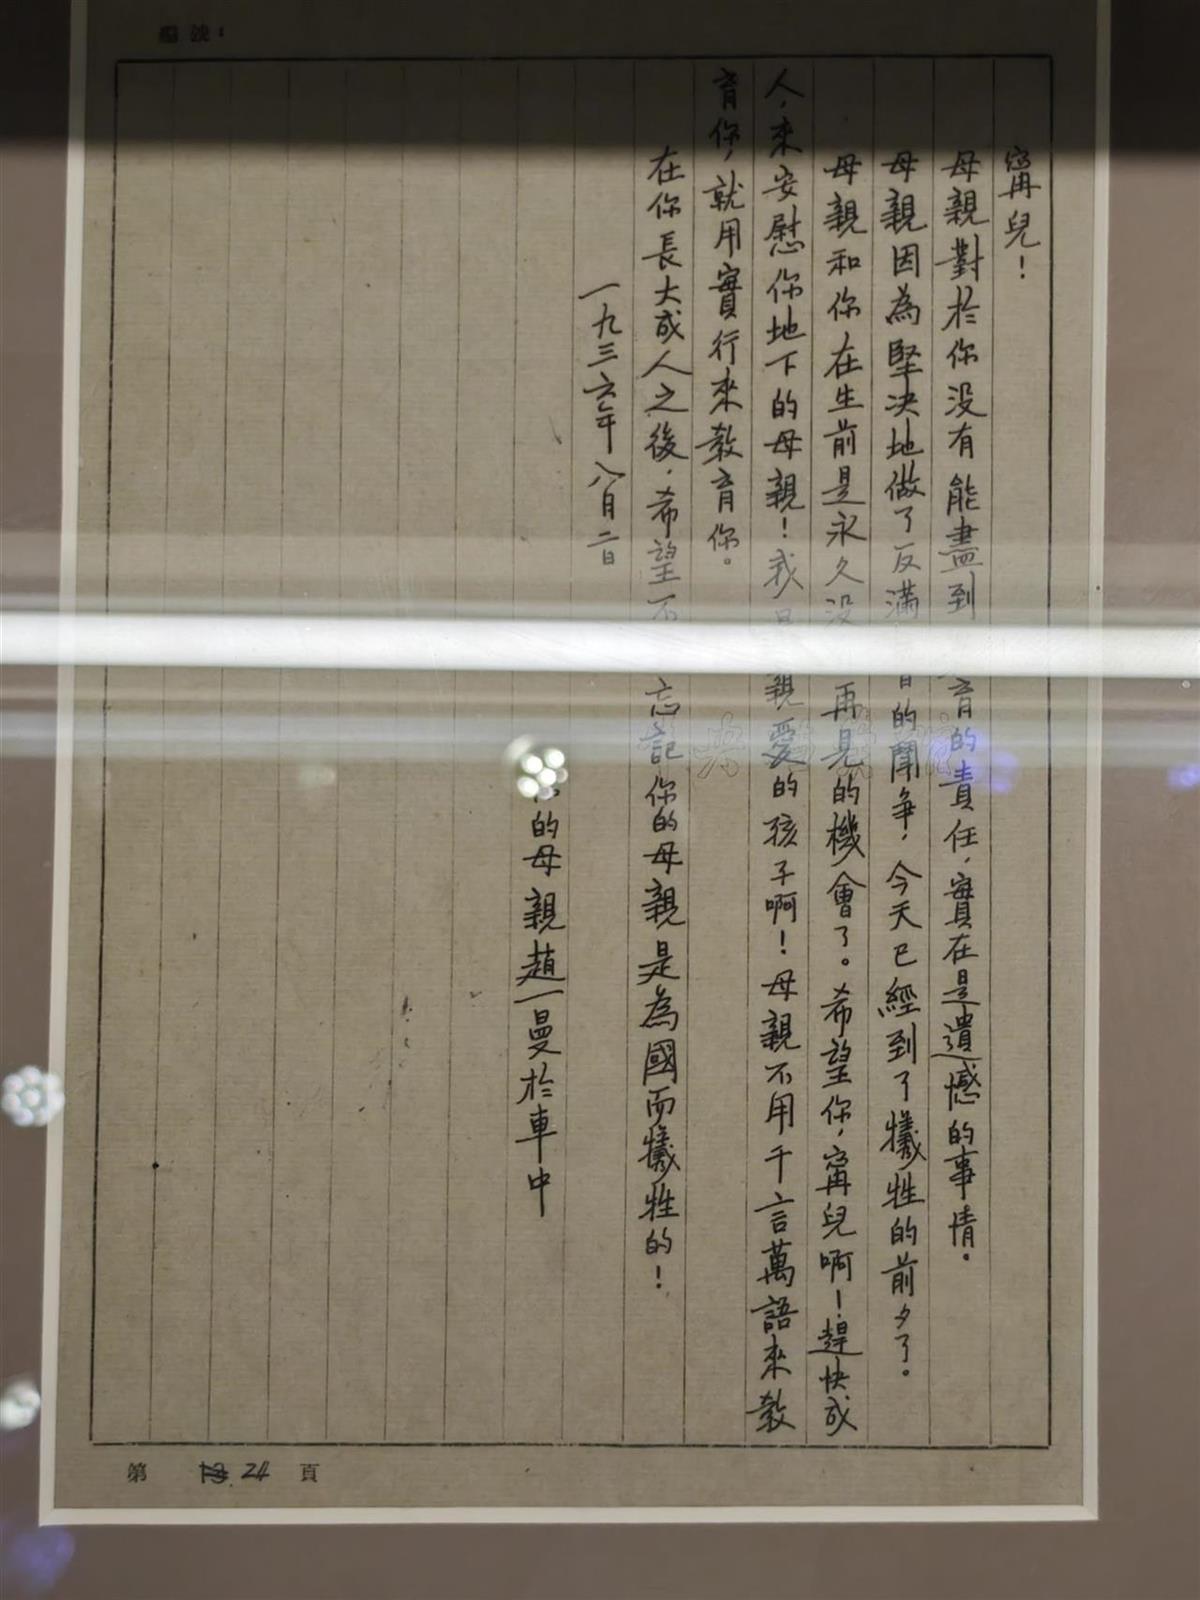 編號：
甯兒！
母親對於你没有能盡到育的責任，實在是遺憾的事情。
母親因為堅决地做了反滿的鬪争，今天已經到了犧牲的前夕了。
母親和你在生前是永久没再見的機會了。希望你，甯兒啊！趕快成
人，來安慰你地下的母親！我親愛的孩子啊！母親不用千言萬語來教
育你，就用實行來教育你。
在你長大成人之後，希望不忘記你的母親是為國而犧牲的！
一九三六年八月二日
的母親趙一曼於車中
第 24 頁